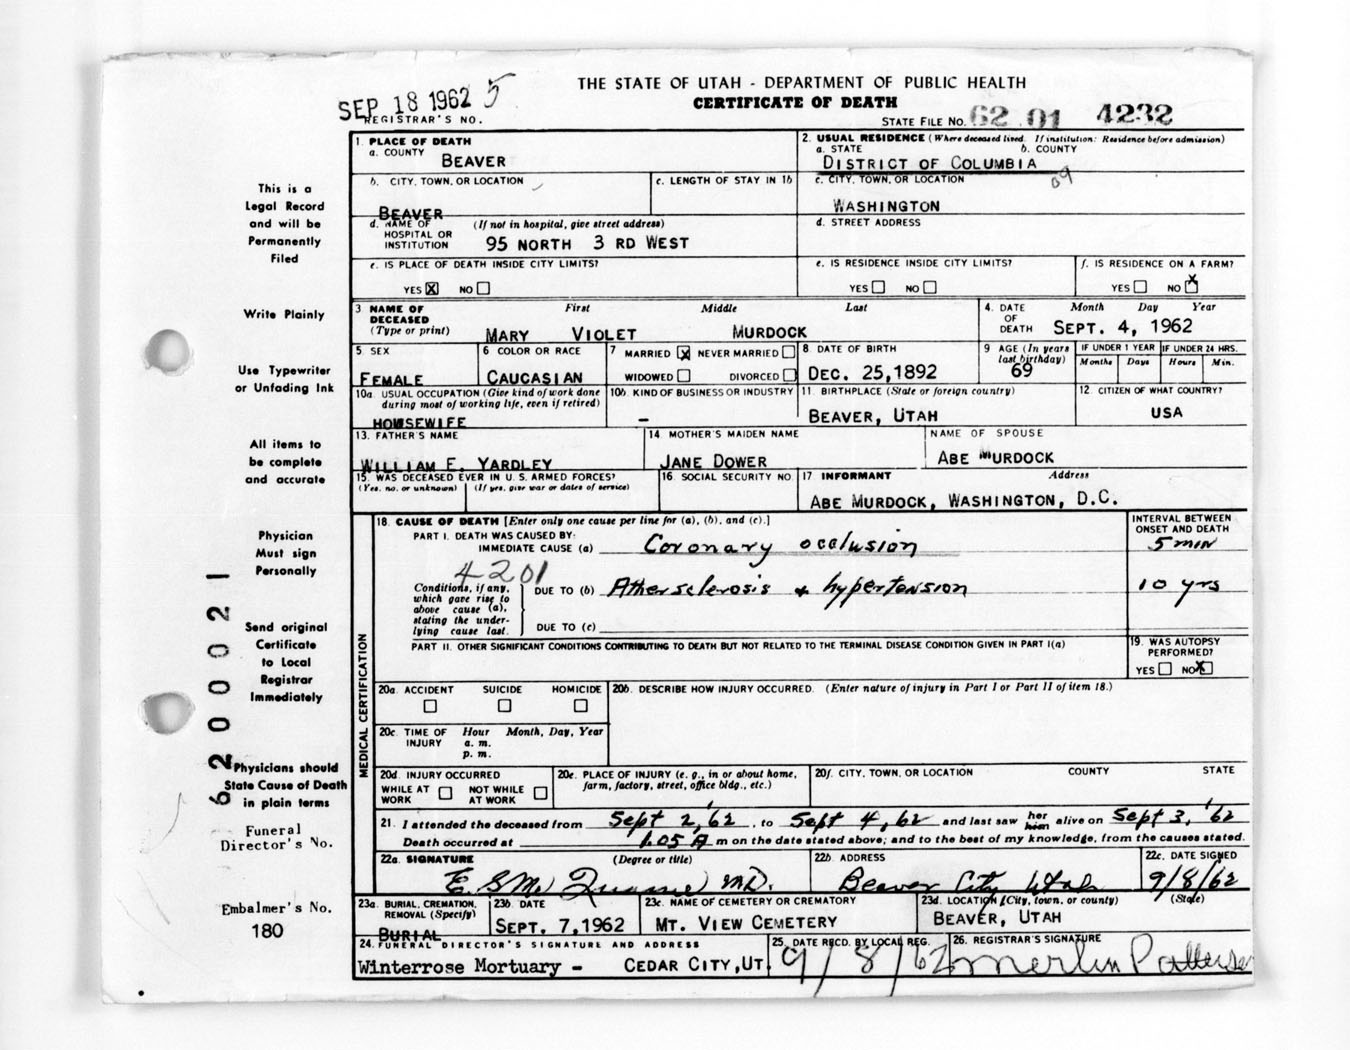 THE STATE OF UTAH - DEPARTMENT OF PUBLIC HEALTH
CERTIFICATE OF DEATH
SEP 18 1962 5
REGISTRAR'S NO.
STATE FILE NO. 62 01 4232
This is a
Legal Record
and will be
Permanently
Filed
Write Plainly
Use Typewriter
or Unfading Ink
All items to
be complete
and accurate
Physician
Must sign
Personally
Send original
Certificate
to Local
Registrar
Immediately
Physicians should
State Cause of Death
in plain terms
Funeral
Director's No.
Embalmer's No.
180
62000021
1. PLACE OF DEATH
a. COUNTY BEAVER
2. USUAL RESIDENCE (Where deceased lived. If institution: Residence before admission)
a. STATE b. COUNTY
DISTRICT OF COLUMBIA
09
b. CITY, TOWN, OR LOCATION
BEAVER
c. LENGTH OF STAY IN 1b
c. CITY, TOWN, OR LOCATION
WASHINGTON
d. NAME OF HOSPITAL OR INSTITUTION (If not in hospital, give street address)
95 NORTH 3 RD WEST
d. STREET ADDRESS
e. IS PLACE OF DEATH INSIDE CITY LIMITS?
YES X NO
e. IS RESIDENCE INSIDE CITY LIMITS?
YES NO
f. IS RESIDENCE ON A FARM?
YES NO X
3 NAME OF DECEASED (Type or print) First Middle Last
MARY VIOLET MURDOCK
4. DATE OF DEATH Month Day Year
SEPT. 4, 1962
5. SEX
FEMALE
6 COLOR OR RACE
CAUCASIAN
7 MARRIED X NEVER MARRIED
WIDOWED DIVORCED
8 DATE OF BIRTH
DEC. 25,1892
9 AGE (In years last birthday)
69
IF UNDER 1 YEAR IF UNDER 24 HRS.
Months Days Hours Min.
10a. USUAL OCCUPATION (Give kind of work done during most of working life, even if retired)
HOUSEWIFE
10b. KIND OF BUSINESS OR INDUSTRY
-
11. BIRTHPLACE (State or foreign country)
BEAVER, UTAH
12. CITIZEN OF WHAT COUNTRY?
USA
13. FATHER'S NAME
WILLIAM E. YARDLEY
14 MOTHER'S MAIDEN NAME
JANE DOWER
NAME OF SPOUSE
ABE MURDOCK
15. WAS DECEASED EVER IN U. S. ARMED FORCES?
(Yes, no, or unknown) (If yes, give war or dates of service)
16. SOCIAL SECURITY NO.
17 INFORMANT Address
ABE MURDOCK, WASHINGTON, D.C.
MEDICAL CERTIFICATION
18. CAUSE OF DEATH [Enter only one cause per line for (a), (b), and (c).]
INTERVAL BETWEEN
ONSET AND DEATH
PART I. DEATH WAS CAUSED BY:
IMMEDIATE CAUSE (a) Coronary occlusion 5 min
4201
Conditions, if any,
which gave rise to
above cause (a),
stating the under-
lying cause last.
DUE TO (b) Athersclerosis + hypertension 10 yrs
DUE TO (c)
PART II. OTHER SIGNIFICANT CONDITIONS CONTRIBUTING TO DEATH BUT NOT RELATED TO THE TERMINAL DISEASE CONDITION GIVEN IN PART I(a)
19. WAS AUTOPSY PERFORMED?
YES NO X
20a. ACCIDENT SUICIDE HOMICIDE
20b. DESCRIBE HOW INJURY OCCURRED. (Enter nature of injury in Part I or Part II of item 18.)
20c. TIME OF INJURY Hour Month, Day, Year
a. m.
p. m.
20d. INJURY OCCURRED
WHILE AT WORK NOT WHILE AT WORK
20e. PLACE OF INJURY (e. g., in or about home, farm, factory, street, office bldg., etc.)
20f. CITY, TOWN, OR LOCATION COUNTY STATE
21. I attended the deceased from Sept 2, '62, to Sept 4, 62 and last saw her him alive on Sept 3, '62
Death occurred at 1.05 A m on the date stated above; and to the best of my knowledge, from the causes stated.
22a. SIGNATURE (Degree or title)
M.D.
22b. ADDRESS
Beaver City Utah
22c. DATE SIGNED
9/8/62
23a. BURIAL, CREMATION, REMOVAL (Specify)
BURIAL
23b. DATE
SEPT. 7,1962
23c. NAME OF CEMETERY OR CREMATORY
MT. VIEW CEMETERY
23d. LOCATION (City, town, or county) (State)
BEAVER, UTAH
24. FUNERAL DIRECTOR'S SIGNATURE AND ADDRESS
Winterrose Mortuary - CEDAR CITY,UT.
25. DATE RECD. BY LOCAL REG.
9/8/62
26. REGISTRAR'S SIGNATURE
Merlin